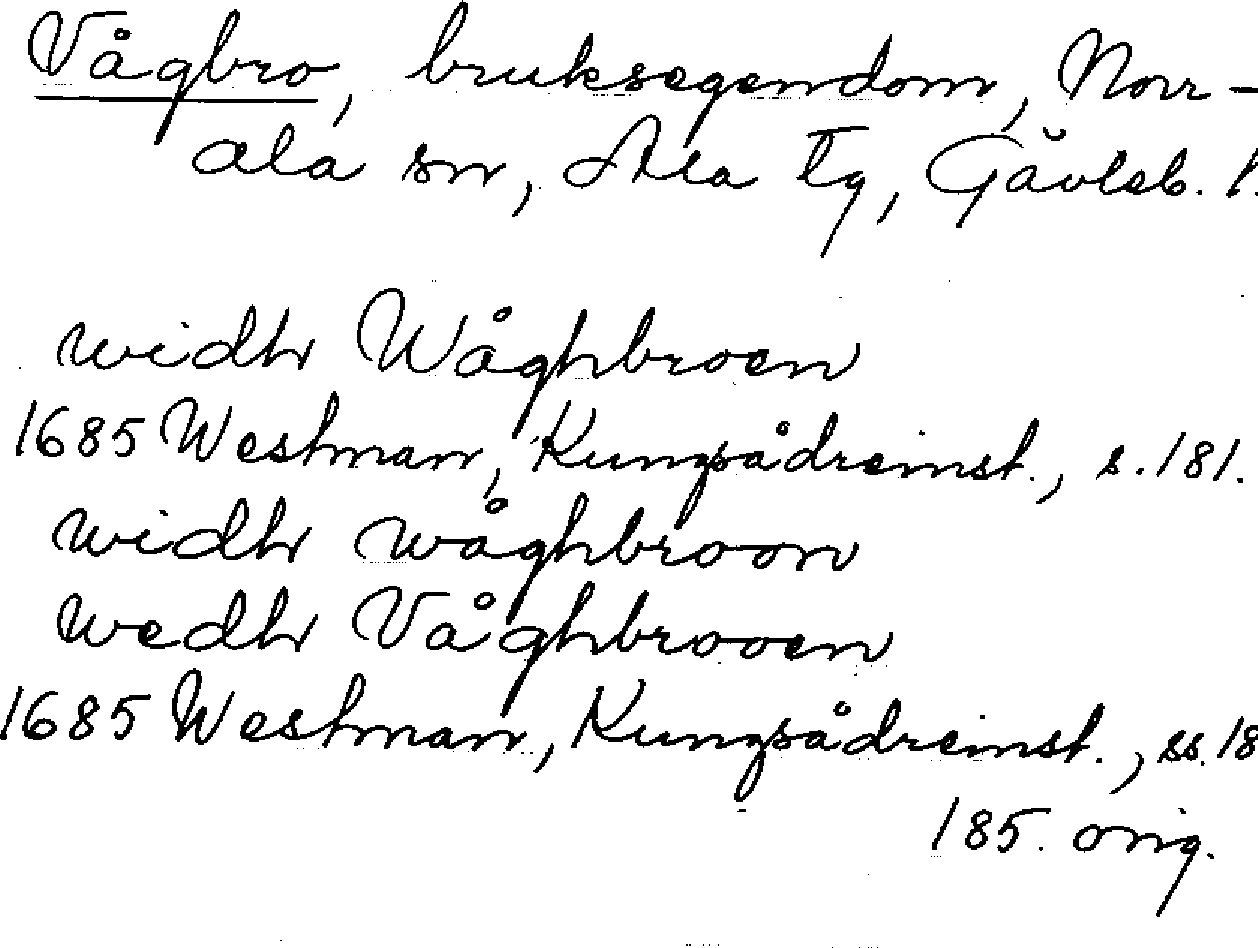 Vågbro, bruksegendom, Norr-
ala sn, Ala tg, Gävleb. l.
widh Wåghbroen
1685 Westman, Kungsådreinst., s. 181.
widh wåghbroon
wedh Våghbrooen
1685 Westman, Kungsådreinst., ss. 18
185. orig.